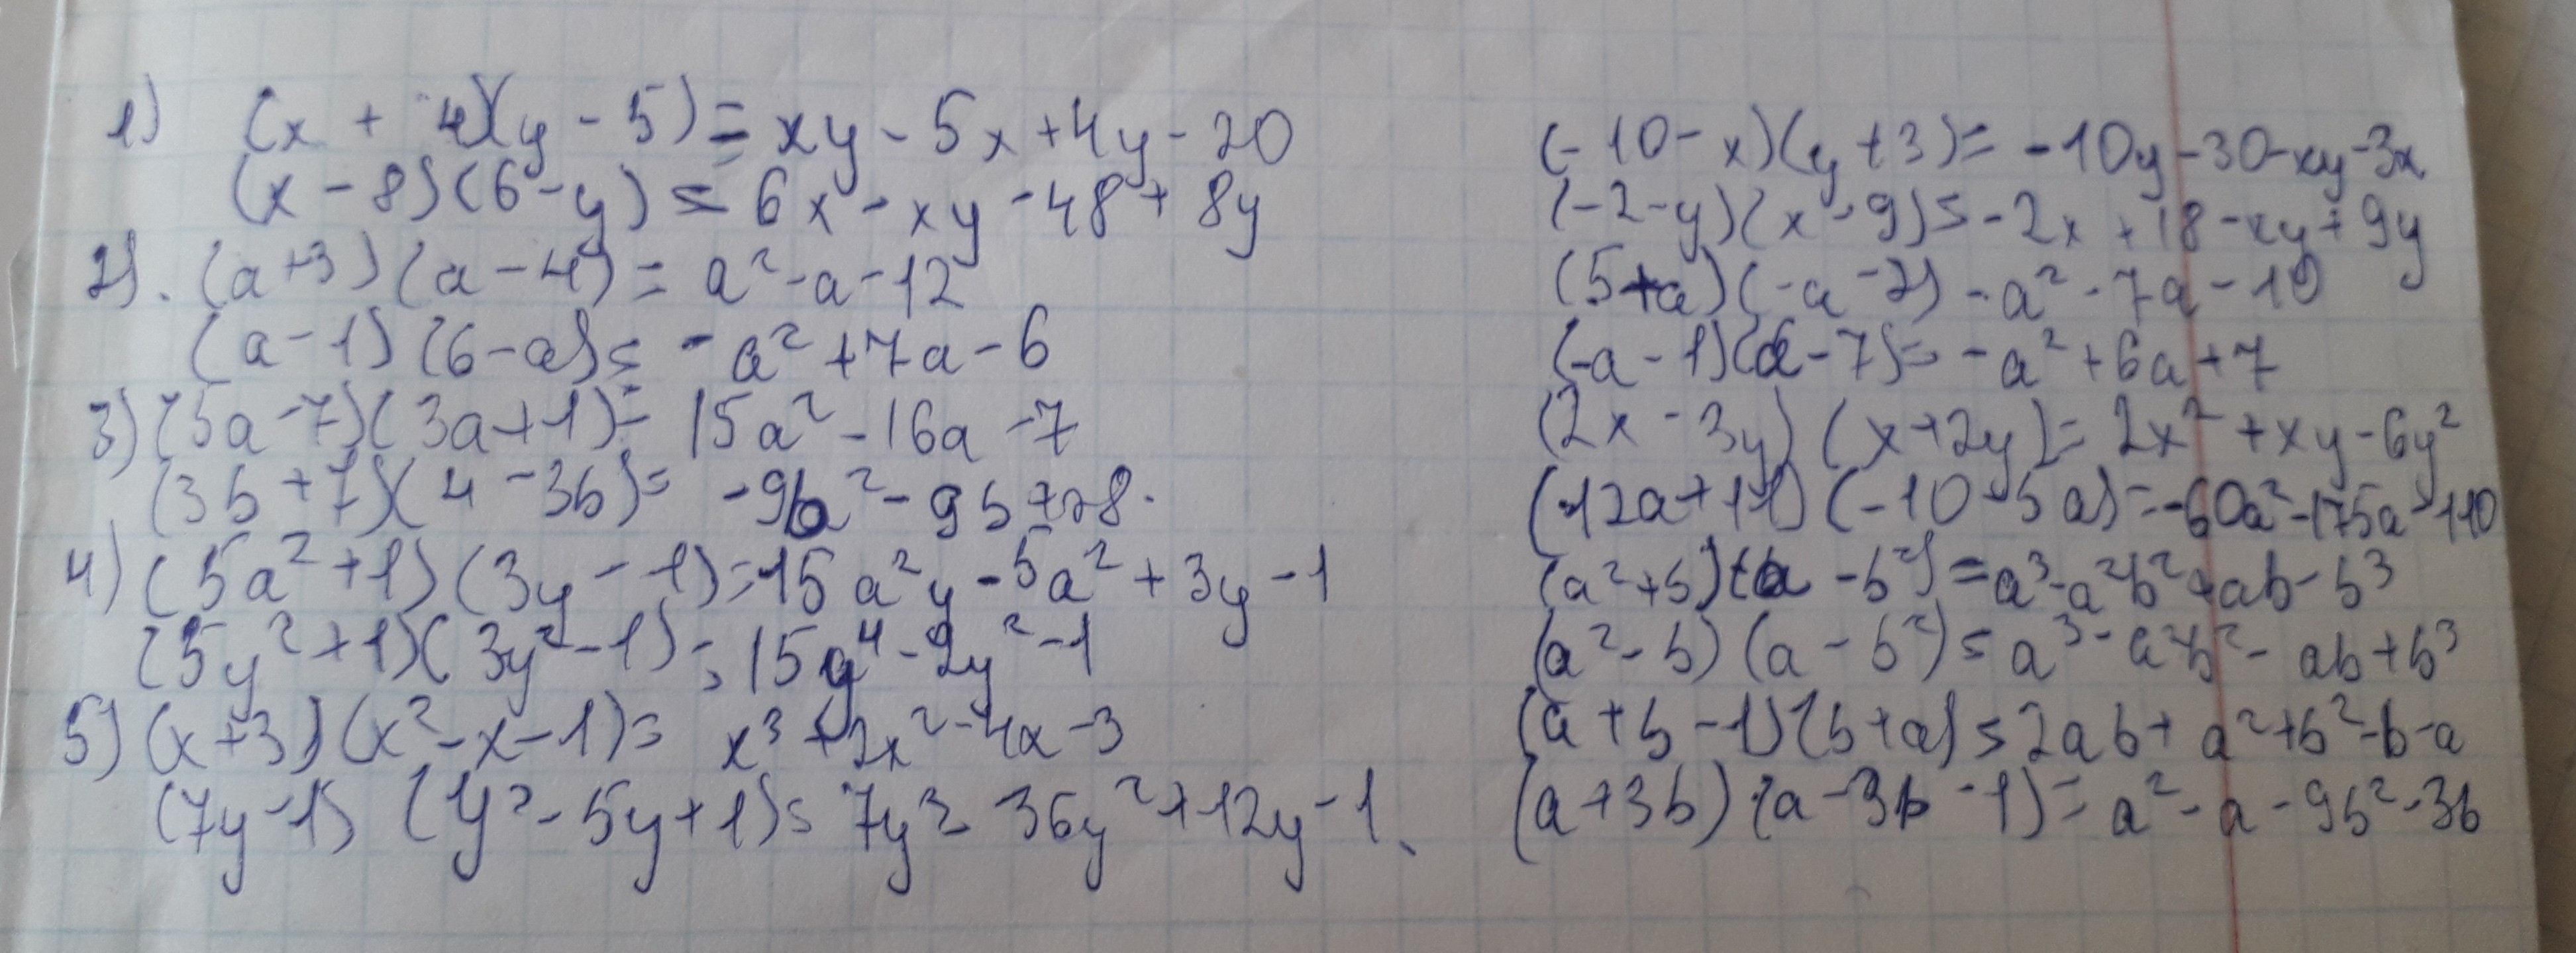 1) (x + 4)(y - 5) = xy - 5x + 4y - 20
(x - 8)(6 - y) = 6x - xy - 48 + 8y
2). (a + 3)(a - 4) = a² - a - 12
(a - 1)(6 - a) = - a² + 7a - 6
3) (5a - 7)(3a + 1) = 15a² - 16a - 7
(3b + 7)(4 - 3b) = -9b² - 9b + 28.
4) (5a² + 1)(3y - 1) = 15a²y - 5a² + 3y - 1
(5y² + 1)(3y² - 1) = 15y⁴ - 2y² - 1
5) (x + 3)(x² - x - 1) = x³ + 2x² - 4x - 3
(7y - 1)(y² - 5y + 1) = 7y³ - 36y² + 12y - 1.
(-10 - x)(y + 3) = -10y - 30 - xy - 3x
(-2 - y)(x - 9) = -2x + 18 - xy + 9y
(5 + a)(-a - 2) - a² - 7a - 10
(-a - 1)(a - 7) = - a² + 6a + 7
(2x - 3y)(x + 2y) = 2x² + xy - 6y²
(12a + 11)(-10 - 5a) = -60a² - 175a - 110
(a² + b)(a - b²) = a³ - a²b² + ab - b³
(a² - b)(a - b²) = a³ - a²b² - ab + b³
(a + b - 1)(b + a) = 2ab + a² + b² - b - a
(a + 3b)(a - 3b - 1) = a² - a - 9b² - 3b